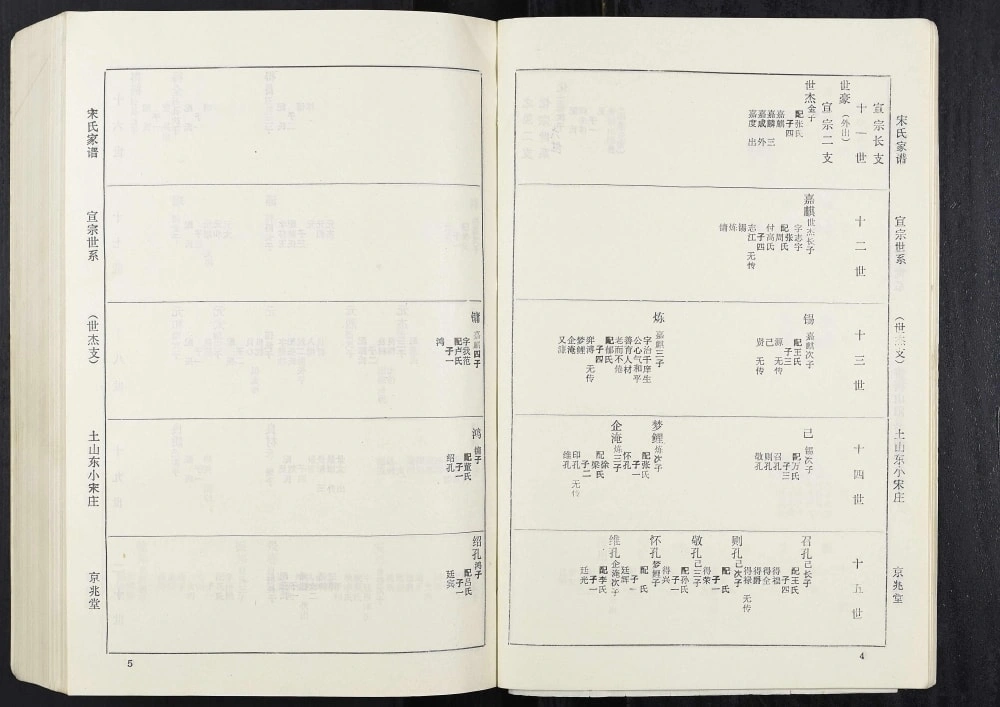 宋氏家谱
宣宗世系
（世杰支）
土山东小宋庄
京兆堂
宣宗长支
十一世
世豪
（外出）
宣宗二支
世杰金子
配张氏
子四
嘉麒
嘉麟三
嘉成外
嘉度出
十二世
嘉麒世杰长子
字志宇
配张氏
周氏
付高氏
子四
志江无传
锡
炼
镛
十三世
锡嘉麒次子
配王氏
子三
源无传
己
贤无传
炼嘉麒三子
字治千庠生
公心气和平
善育人材
老而不倦
配郁氏
子四
弈溥无传
梦鲤
企淹
又谦
十四世
己锡次子
配万氏
子三
召孔
则孔
敬孔
梦鲤炼次子
配张氏
子一
怀孔
企淹炼三子
配徐氏
梁氏
子二
印孔无传
维孔
十五世
召孔己长子
配王氏
子四
得福
得全
得爵
得禄无传
则孔己次子
配氏
子一
得荣
敬孔己三子
配孙氏
子一
得兴
怀孔梦鲤子
配氏
子一
廷辉
维孔企淹次子
配李氏
子一
廷光
4
镛嘉麒四子
字我范
配卢氏
子一
鸿
鸿镛子
配董氏
子一
绍孔
绍孔鸿子
配吕氏
子一
廷宾
宋氏家谱
宣宗世系
（世杰支）
土山东小宋庄
京兆堂
5